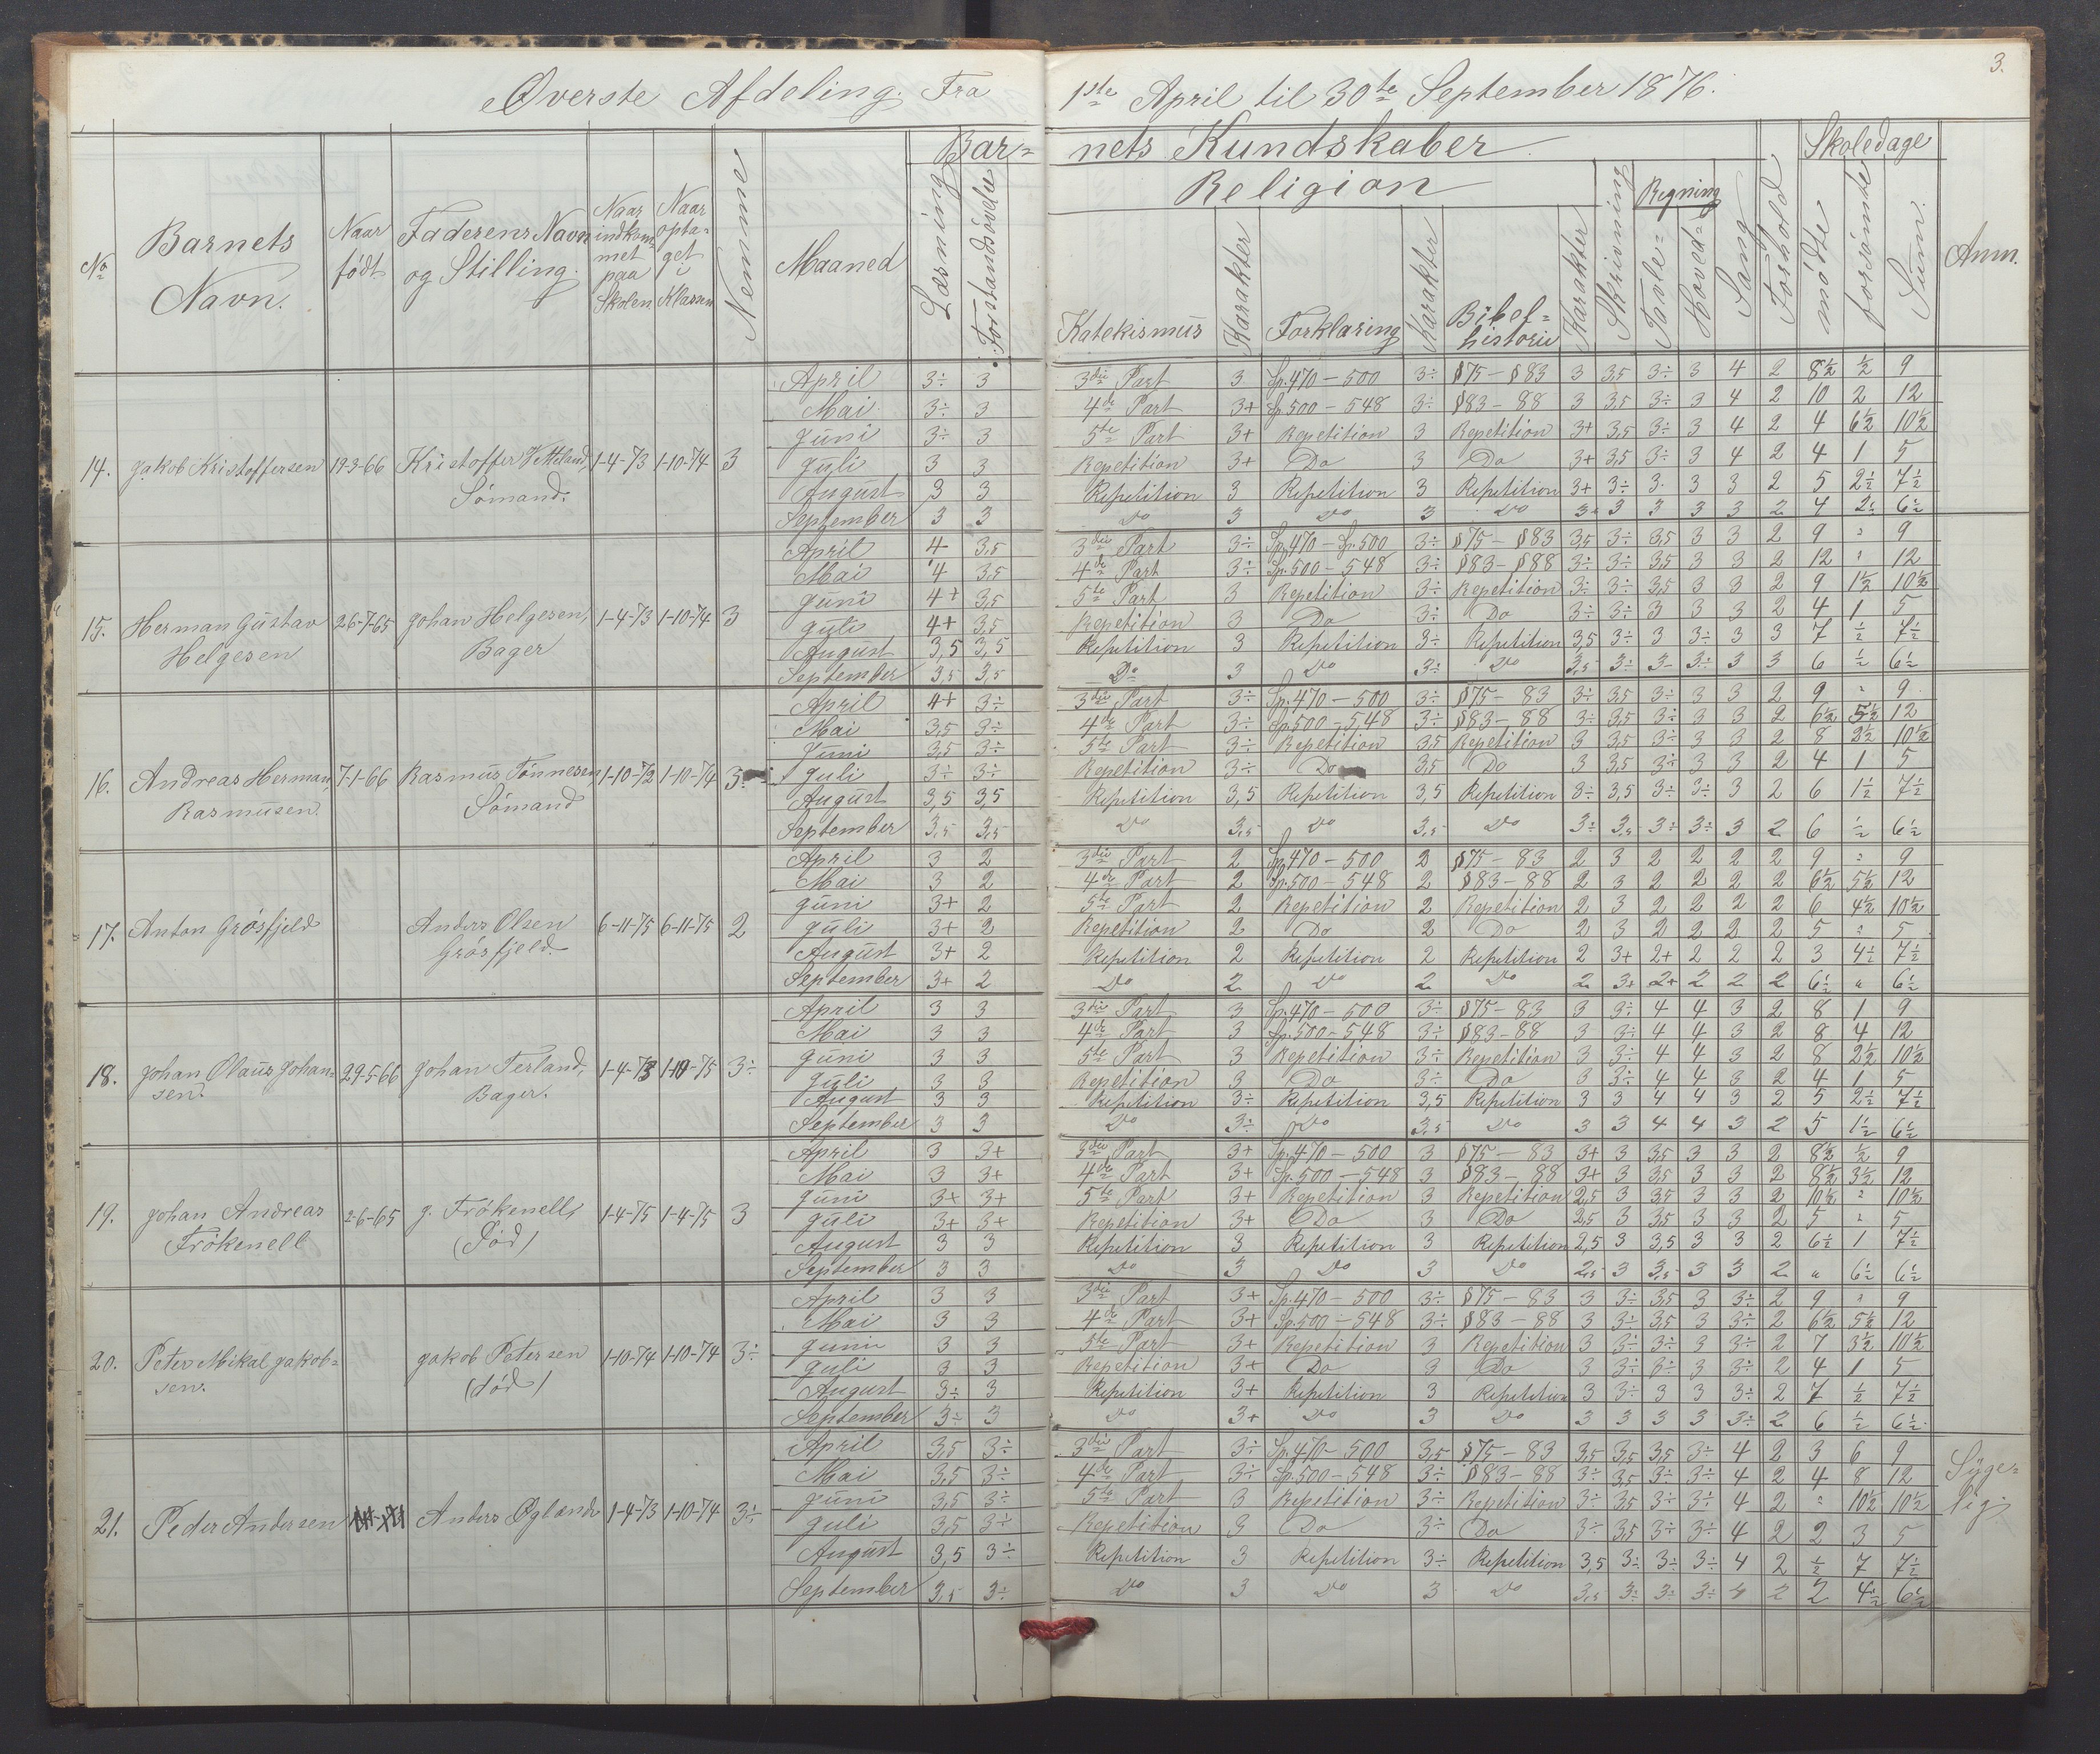 3.
Øverste Afdeling. Fra 1ste April til 30te September 1876.
No
Barnets Navn.
Naar født
Faderens Navn og Stilling.
Naar indkommet paa Skolen
Naar optaget i Klassen
Nemme
Maaned
Barnets Kundskaber
Læsning
Forstandsøvelse
Religion
Katekismus
Karakter
Forklaring
Karakter
Bibelhistorie
Karakter
Skrivning
Regning
Tavle=
Hoved=
Sang
Forhold
Skoledage
mødte
forsømte
Sum.
Anm.
14. Jakob Kristoffersen 19-3-66 Kristoffer Vetteland, Sømand. 1-4-73 1-10-74 3
April 3÷ 3 3die Part 3 Sp. 470-500 3÷ §75-§83 3 3,5 3÷ 3 4 2 8½ ½ 9
Mai 3÷ 3 4de Part 3+ Sp. 500-548 3÷ §83-88 3 3,5 3÷ 3 4 2 10 2 12
Juni 3÷ 3 5te Part 3+ Repetition 3 Repetition 3+ 3,5 3÷ 3 4 2 4 6½ 10½
Juli 3 3 Repetition 3+ Do 3 Do 3+ 3,5 3÷ 3 4 2 4 1 5
August 3 3 Repetition 3 Repetition 3 Repetition 3+ 3÷ 3 3 3 2 5 2½ 7½
September 3 3 Do 3 Do 3 Do 3+ 3 3 3 3 2 4 2½ 6½
15. Herman Gustav Helgesen 26-7-65 Johan Helgesen, Bager 1-4-73 1-10-74 3
April 4 3,5 3die Part 3÷ Sp. 470-Sp. 500 3÷ §75-§83 3,5 3÷ 3,5 3 3 2 9 " 9
Mai 4 3,5 4de Part 3÷ Sp. 500-548 3÷ §83-§88 3÷ 3÷ 3,5 3 3 2 12 " 12
Juni 4+ 3,5 5te Part 3 Repetition 3÷ Repetition 3÷ 3÷ 3,5 3 3 2 9 1½ 10½
Juli 4+ 3,5 Repetition 3 Do 3÷ Do 3÷ 3÷ 3 3 3 2 4 1 5
August 3,5 3,5 Repetition 3 Repetition 3÷ Repetition 3,5 3÷ 3 3÷ 3 3 7 ½ 7½
September 3,5 3,5 Do 3 Do 3÷ Do 3,5 3÷ 3 3÷ 3 3 6 ½ 6½
16. Andreas Herman Rasmusen. 7-1-66 Rasmus Tønnesen, Sømand 1-10-72 1-10-74 3÷
April 4+ 3÷ 3die Part 3÷ Sp. 470-500 3÷ §75-83 3÷ 3,5 3÷ 3 3 2 9 " 9
Mai 3,5 3÷ 4de Part 3÷ Sp. 500-548 3÷ §83-88 3÷ 3,5 3÷ 3 3 2 6½ 5½ 12
Juni 3,5 3÷ 5te Part 3÷ Repetition 3,5 Repetition 3 3,5 3÷ 3 3 2 8 2½ 10½
Juli 3÷ 3÷ Repetition 3÷ Do 3,5 Do 3 3,5 3÷ 3 3 2 4 1 5
August 3,5 3,5 Repetition 3,5 Repetition 3,5 Repetition 3÷ 3,5 3÷ 3÷ 3 2 6 1½ 7½
September 3,5 3,5 Do 3,5 Do 3,5 Do 3÷ 3,5 3÷ 3÷ 3 2 6 ½ 6½
17. Anton Grøsfjeld Anders Olsen Grøsfjeld. 6-11-75 6-11-75 2
April 3 2 3die Part 2 Sp. 470-500 2 §75-83 2 3 2 2 2 2 9 " 9
Mai 3 2 4de Part 2 Sp. 500-548 2 §83-88 2 3 2 2 2 2 6½ 5½ 12
Juni 3+ 2 5te Part 2 Repetition 2 Repetition 2 3 2 2 2 2 6 4½ 10½
Juli 3+ 2 Repetition 2 Do 2 Do 2 3 2 2 2 2 5 " 5
August 3+ 2 Repetition 2 Repetition 2 Repetition 2 3+ 2+ 2 2 2 3 4½ 7½
September 3+ 2 Do 2 Do 2 Do 2 3+ 2+ 2 2 2 6½ " 6½
18. Johan Olaus Johansen. 29-5-66 Johan Terland, Bager. 1-4-73 1-10-75 3÷
April 3 3 3die Part 3 Sp. 470-500 3÷ §75-83 3 3÷ 4 4 3 2 8 1 9
Mai 3 3 4de Part 3 Sp. 500-548 3÷ §83-88 3 3÷ 4 4 3 2 8 4 12
Juni 3 3 5te Part 3 Repetition 3÷ Repetition 3 3÷ 4 4 3 2 8 2½ 10½
Juli 3 3 Repetition 3 Do 3÷ Do 3 3÷ 4 4 3 2 4 1 5
August 3 3 Repetition 3÷ Repetition 3,5 Repetition 3 3 4 4 3 2 5 2½ 7½
September 3 3 Do 3÷ Do 3,5 Do 3 3 4 4 3 2 5 1½ 6½
19. Johan Andreas Frökenell 2-6-65 J. Frökenell, (Død) 1-4-75 1-4-75 3
April 3 3+ 3die Part 3+ Sp. 470-500 3 §75-83 3+ 3 3,5 3 3 2 8½ ½ 9
Mai 3 3+ 4de Part 3+ Sp. 500-548 3 §83-88 3+ 3 3,5 3 3 2 8½ 3½ 12
Juni 3+ 3+ 5te Part 3+ Repetition 3 Repetition 2,5 3 3,5 3 3 2 10½ " 10½
Juli 3+ 3+ Repetition 3+ Do 3 Do 2,5 3 3,5 3 3 2 5 " 5
August 3 3 Repetition 3 Repetition 3 Repetition 2,5 3 3,5 3 3 2 6½ 1 7½
September 3 3 Do 3 Do 3 Do 2,5 3 3,5 3 3 2 " 6½ 6½
20. Peter Mikal Jakobsen. Jakob Petersen (død) 1-10-74 1-10-74 3÷
April 3 3 3die Part 3+ Sp. 470-500 3÷ §75-83 3 3÷ 3,5 3 3÷ 2 9 " 9
Mai 3 3 4de Part 3+ Sp. 500-548 3÷ §83-88 3 3÷ 3,5 3 3÷ 2 6½ 5½ 12
Juni 3 3 5te Part 3+ Repetition 3 Repetition 3 3÷ 3÷ 3 3÷ 2 7 3½ 10½
Juli 3 3 Repetition 3+ Do 3 Do 3 3÷ 3÷ 3 3÷ 2 4 1 5
August 3÷ 3 Repetition 3+ Repetition 3 Repetition 3 3÷ 3 3 3÷ 2 7 ½ 7½
September 3÷ 3 Do 3+ Do 3 Do 3 3 3 3 3÷ 2 6 ½ 6½
21. Peder Andersen Anders Øglænd 1-4-73 1-10-74 3÷
April 3,5 3÷ 3die Part 3÷ Sp. 470-500 3,5 §75-83 3,5 3,5 3,5 3÷ 4 2 3 6 9 Syge=
Mai 3,5 3÷ 4de Part 3÷ Sp. 500-548 3÷ §83-88 3÷ 3,5 3÷ 3÷ 4 2 4 8 12 lig.
Juni 3,5 3÷ 5te Part 3 Repetition 3÷ Repetition 3÷ 3,5 3÷ 3÷ 4 2 " 10½ 10½
Juli 3,5 3÷ Repetition 3 Do 3÷ Do 3÷ 3,5 3÷ 3÷ 4 2 2 3 5
August 3,5 3÷ Repetition 3 Repetition 3÷ Repetition 3,5 3÷ 3÷ 3÷ 4 2 ½ 7 7½
September 3,5 3÷ Do 3 Do 3 Do 3,5 3÷ 3÷ 3÷ 4 2 2 4½ 6½